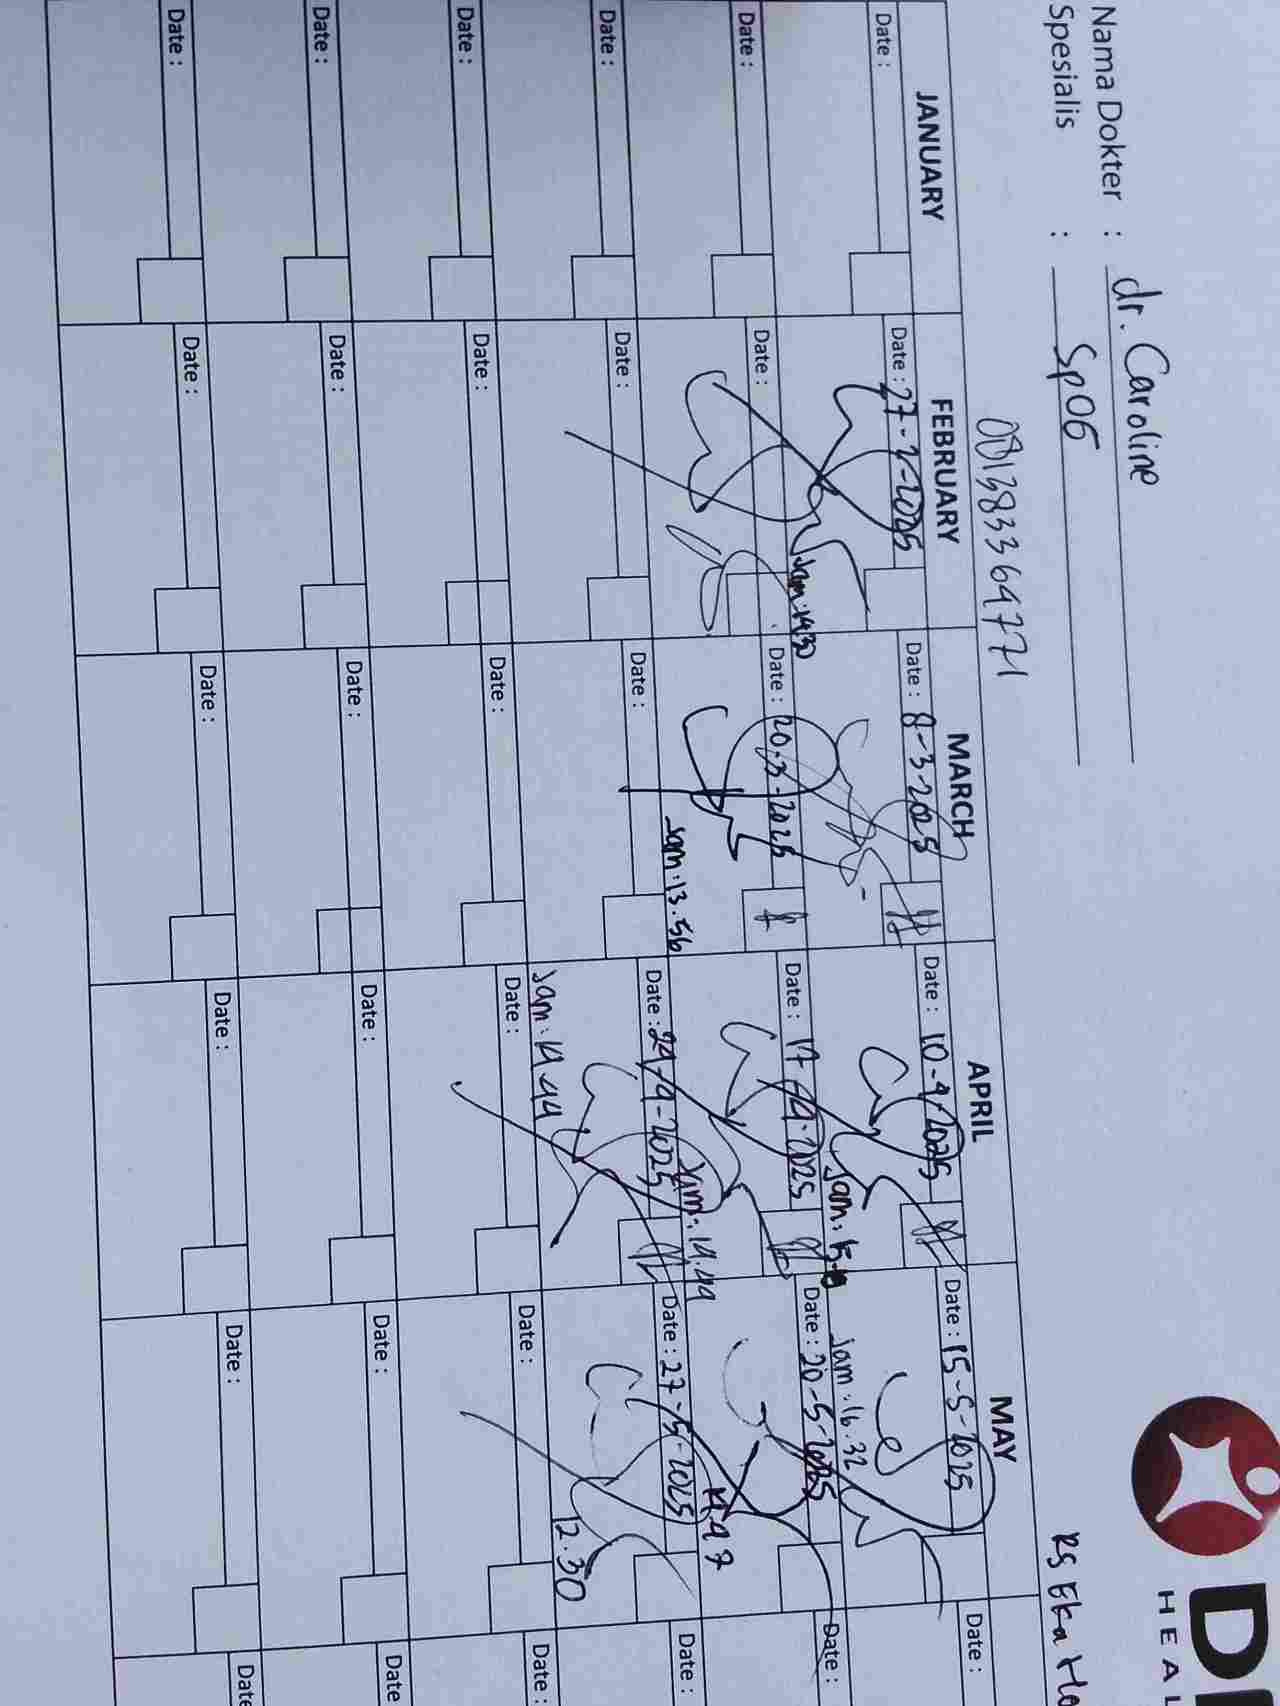 DI
HEAL
RS Eka Ho
Nama Dokter : dr. Caroline
Spesialis : SpOG
081383364771
JANUARY FEBRUARY MARCH APRIL MAY
Date : Date : 27-2-2025 Date : 8-3-2025 Date : 10-4-2025 Date : 15-5-2025 Date :
Jam: 14.30 Jam: 15.10 Jam: 16.32
Date : Date : Date : 20-3-2025 Date : 17-4-2025 Date : 20-5-2025 Date :
Jam: 13.56 Jam: 14.49 14.47
Date : Date : Date : Date : 24-4-2025 Date : 27-5-2025 Date :
Jam: 14.44 12.30
Date : Date : Date : Date : Date : Date :
Date : Date : Date : Date : Date : Date
Date : Date : Date : Date : Date : Date